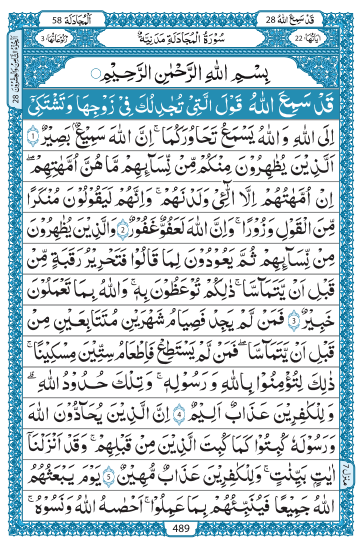 قَدْ سَمِعَ اللهُ 28
اَلْمُجَادَلَة 58
اٰيَاتُهَا: 22
سُوْرَةُ الْمُجَادَلَةِ مَدَنِيَّةٌ
رُكُوْعَاتُهَا: 3
بِسْمِ اللهِ الرَّحْمٰنِ الرَّحِيْمِ
قَدْ سَمِعَ اللهُ قَوْلَ الَّتِيْ تُجَادِلُكَ فِيْ زَوْجِهَا وَتَشْتَكِيْٓ
اِلَى اللهِ وَاللهُ يَسْمَعُ تَحَاوُرَكُمَا ؕ اِنَّ اللهَ سَمِيْعٌۢ بَصِيْرٌ 1
اَلَّذِيْنَ يُظٰهِرُوْنَ مِنْكُمْ مِّنْ نِّسَآئِهِمْ مَّا هُنَّ اُمَّهٰتِهِمْ ؕ
اِنْ اُمَّهٰتُهُمْ اِلَّا الّٰٓـِٔيْ وَلَدْنَهُمْ ؕ وَاِنَّهُمْ لَيَقُوْلُوْنَ مُنْكَرًا
مِّنَ الْقَوْلِ وَزُوْرًا ؕ وَاِنَّ اللهَ لَعَفُوٌّ غَفُوْرٌ 2 وَالَّذِيْنَ يُظٰهِرُوْنَ
مِنْ نِّسَآئِهِمْ ثُمَّ يَعُوْدُوْنَ لِمَا قَالُوْا فَتَحْرِيْرُ رَقَبَةٍ مِّنْ
قَبْلِ اَنْ يَّتَمَآسَّا ؕ ذٰلِكُمْ تُوْعَظُوْنَ بِهٖ ؕ وَاللهُ بِمَا تَعْمَلُوْنَ
خَبِيْرٌ 3 فَمَنْ لَّمْ يَجِدْ فَصِيَامُ شَهْرَيْنِ مُتَتَابِعَيْنِ مِنْ
قَبْلِ اَنْ يَّتَمَآسَّا ؕ فَمَنْ لَّمْ يَسْتَطِعْ فَاِطْعَامُ سِتِّيْنَ مِسْكِيْنًا ؕ
ذٰلِكَ لِتُؤْمِنُوْا بِاللهِ وَرَسُوْلِهٖ ؕ وَتِلْكَ حُدُوْدُ اللهِ ؕ
وَلِلْكٰفِرِيْنَ عَذَابٌ اَلِيْمٌ 4 اِنَّ الَّذِيْنَ يُحَآدُّوْنَ اللهَ
وَرَسُوْلَهٗ كُبِتُوْا كَمَا كُبِتَ الَّذِيْنَ مِنْ قَبْلِهِمْ وَقَدْ اَنْزَلْنَآ
اٰيٰتٍۢ بَيِّنٰتٍ ؕ وَلِلْكٰفِرِيْنَ عَذَابٌ مُّهِيْنٌ 5 يَوْمَ يَبْعَثُهُمُ
اللهُ جَمِيْعًا فَيُنَبِّئُهُمْ بِمَا عَمِلُوْا ؕ اَحْصٰىهُ اللهُ وَنَسُوْهُ ؕ
489